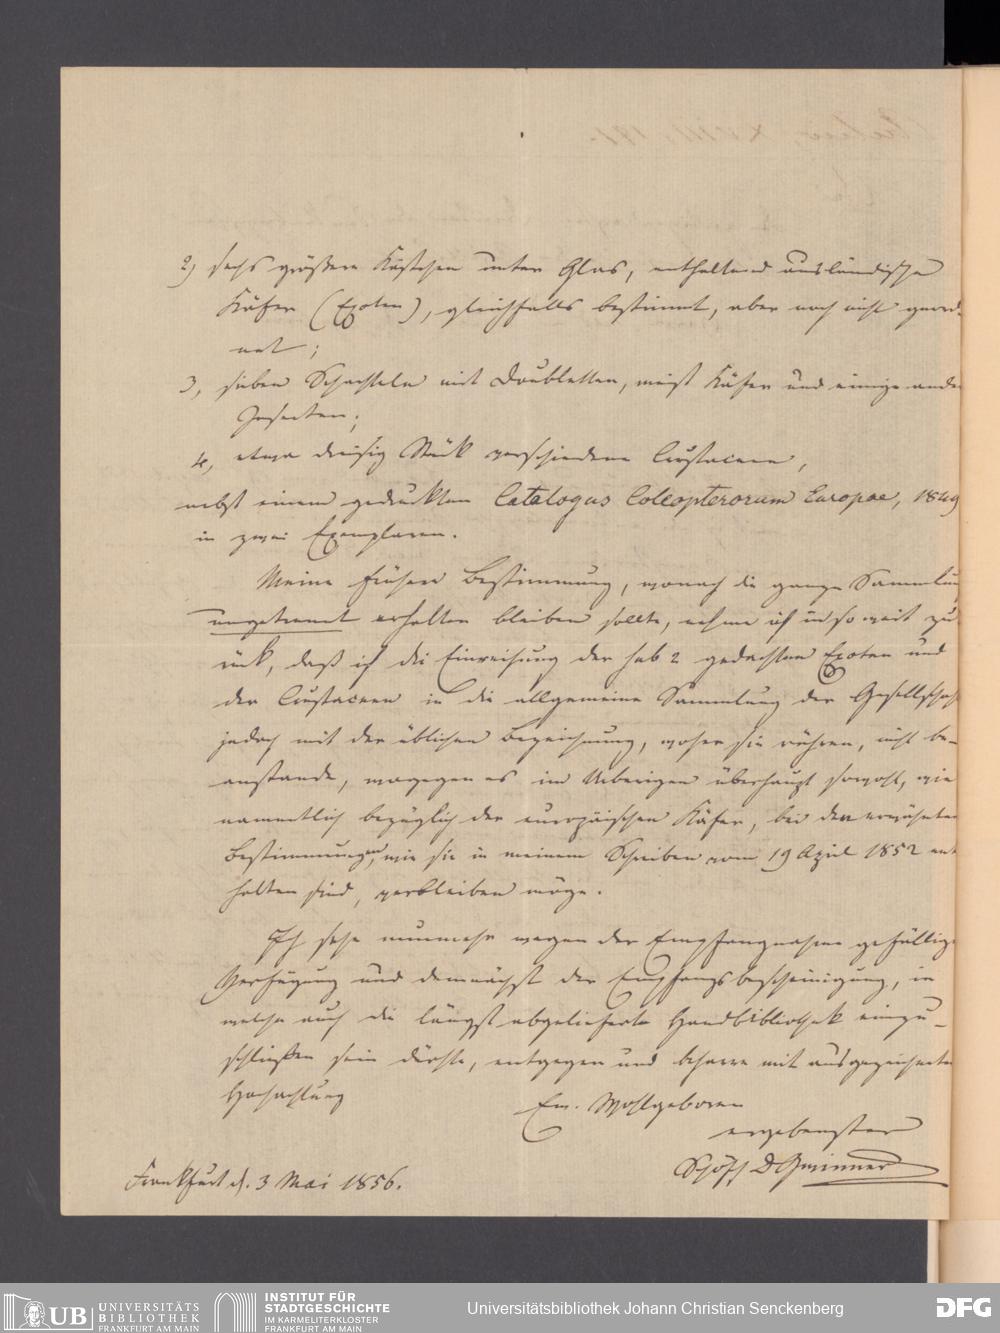 2) sechs größere Kästchen unter Glas, enthaltend ausländische
Käfer (Exoten), gleichfalls bestimmt, aber noch nicht geord-
net;
3, sieben Schachteln mit Doubletten, meist Käfer und einige ander
Insecten;
4, etwa dreißig Stück verschiedene Crustaceen,
nebst einem gedruckten Catalogus Coleopterorum Europae, 1849
in zwei Exemplaren.
Meine frühere Bestimmung, wonach die ganze Sammlung
ungetrennt erhalten bleiben sollte, nehme ich in so weit zu-
rück, daß ich die Einreihung der sub 2 gedachten Exoten und
der Crustaceen in die allgemeine Sammlung der Gesellschaft
jedoch mit der üblichen Bezeichnung, woher sie rühren, nicht be-
anstande, wogegen es im Uebrigen überhaupt sowohl, wie
namentlich bezüglich der europäischen Käfer, bei den erwähnten
Bestimmungen, wie sie in meinem Schreiben vom 19 April 1852 ent
halten sind, verbleiben möge.
Ich sehe nunmehr wegen der Empfangnahme gefälliger
Verfügung und demnächst der Empfangsbescheinigung, in
welche auch die längst abgelieferte Handbibliothek einzu-
schließen sein dürfte, entgegen und beharre mit ausgezeichneter
Hochachtung
Ew. Wohlgeboren
ergebenster
Schöff D Gwinner
Frankfurt d. 3 Mai 1856.
UB UNIVERSITÄTS
BIBLIOTHEK
FRANKFURT AM MAIN
INSTITUT FÜR
STADTGESCHICHTE
IM KARMELITERKLOSTER
FRANKFURT AM MAIN
Universitätsbibliothek Johann Christian Senckenberg
DFG